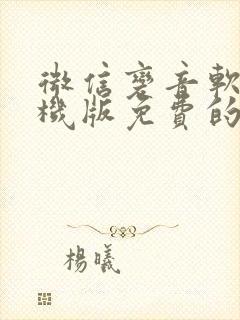 微信變音軟
機版免費的
楊曦